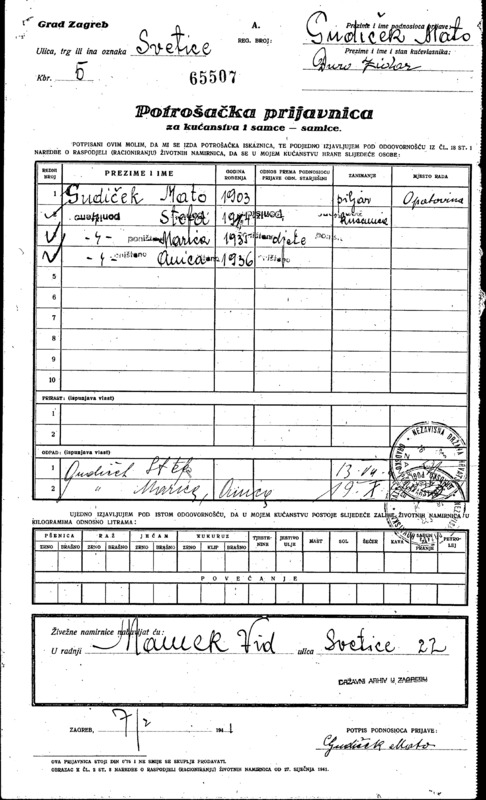 Grad Zagreb
A.
REG. BROJ:
Prezime i ime podnosioca prijave:
Gudiček Mato
Ulica, trg ili ina oznaka Svetice
Prezime i ime i stan kućevlasnika:
Đuro
Kbr. 5
65507
Potrošačka prijavnica
za kućanstva i samce — samice.
POTPISANI OVIM MOLIM, DA MI SE IZDA POTROŠAČKA ISKAZNICA, TE PODJEDNO IZJAVLJUJEM POD ODGOVORNOŠĆU IZ ČL. 18 ST. 1
NAREDBE O RASPODJELI (RACIONIRANJU) ŽIVOTNIH NAMIRNICA, DA SE U MOJEM KUĆANSTVU HRANE SLIJEDEĆE OSOBE:
REDNI BROJ PREZIME I IME GODINA ROĐENJA ODNOS PREMA PODNOSIOCU PRIJAVE ODN. STARJEŠINI ZANIMANJE MJESTO RADA
1 Gudiček Mato 1903 piljar Opatovina
Štefa
-"- Marica dijete
-"- Anica 1936
5
6
7
8
9
10
PRIRAST: (ispunjava vlast)
1
2
OTPAD: (ispunjava vlast)
1 Gudiček Štef
2 " Marica, Anica
UJEDNO IZJAVLJUJEM POD ISTOM ODGOVORNOŠĆU, DA U MOJEM KUĆANSTVU POSTOJE SLIJEDEĆE ZALIHE ŽIVOTNIH NAMIRNICA U
KILOGRAMIMA ODNOSNO LITRAMA:
PŠENICA RAŽ JEČAM KUKURUZ TJESTENINE JESTIVO ULJE MAST SOL ŠEĆER KAVA PETROLEJ
ZRNO BRAŠNO ZRNO BRAŠNO ZRNO BRAŠNO ZRNO KLIP BRAŠNO PRANJE
POVEĆANJE
Živežne namirnice nabavljat ću:
U radnji Mamek Vid ulica Svetice 22
DRŽAVNI ARHIV U ZAGREBU
ZAGREB, 7/2 1941
POTPIS PODNOSIOCA PRIJAVE:
Gudiček Mato
OVA PRIJAVNICA STOJI DIN 0'75 I NE SMIJE SE SKUPLJE PRODAVATI.
OBRAZAC K ČL. 5 ST. 2 NAREDBE O RASPODJELI (RACIONIRANJU) ŽIVOTNIH NAMIRNICA OD 27. SIJEČNJA 1941.